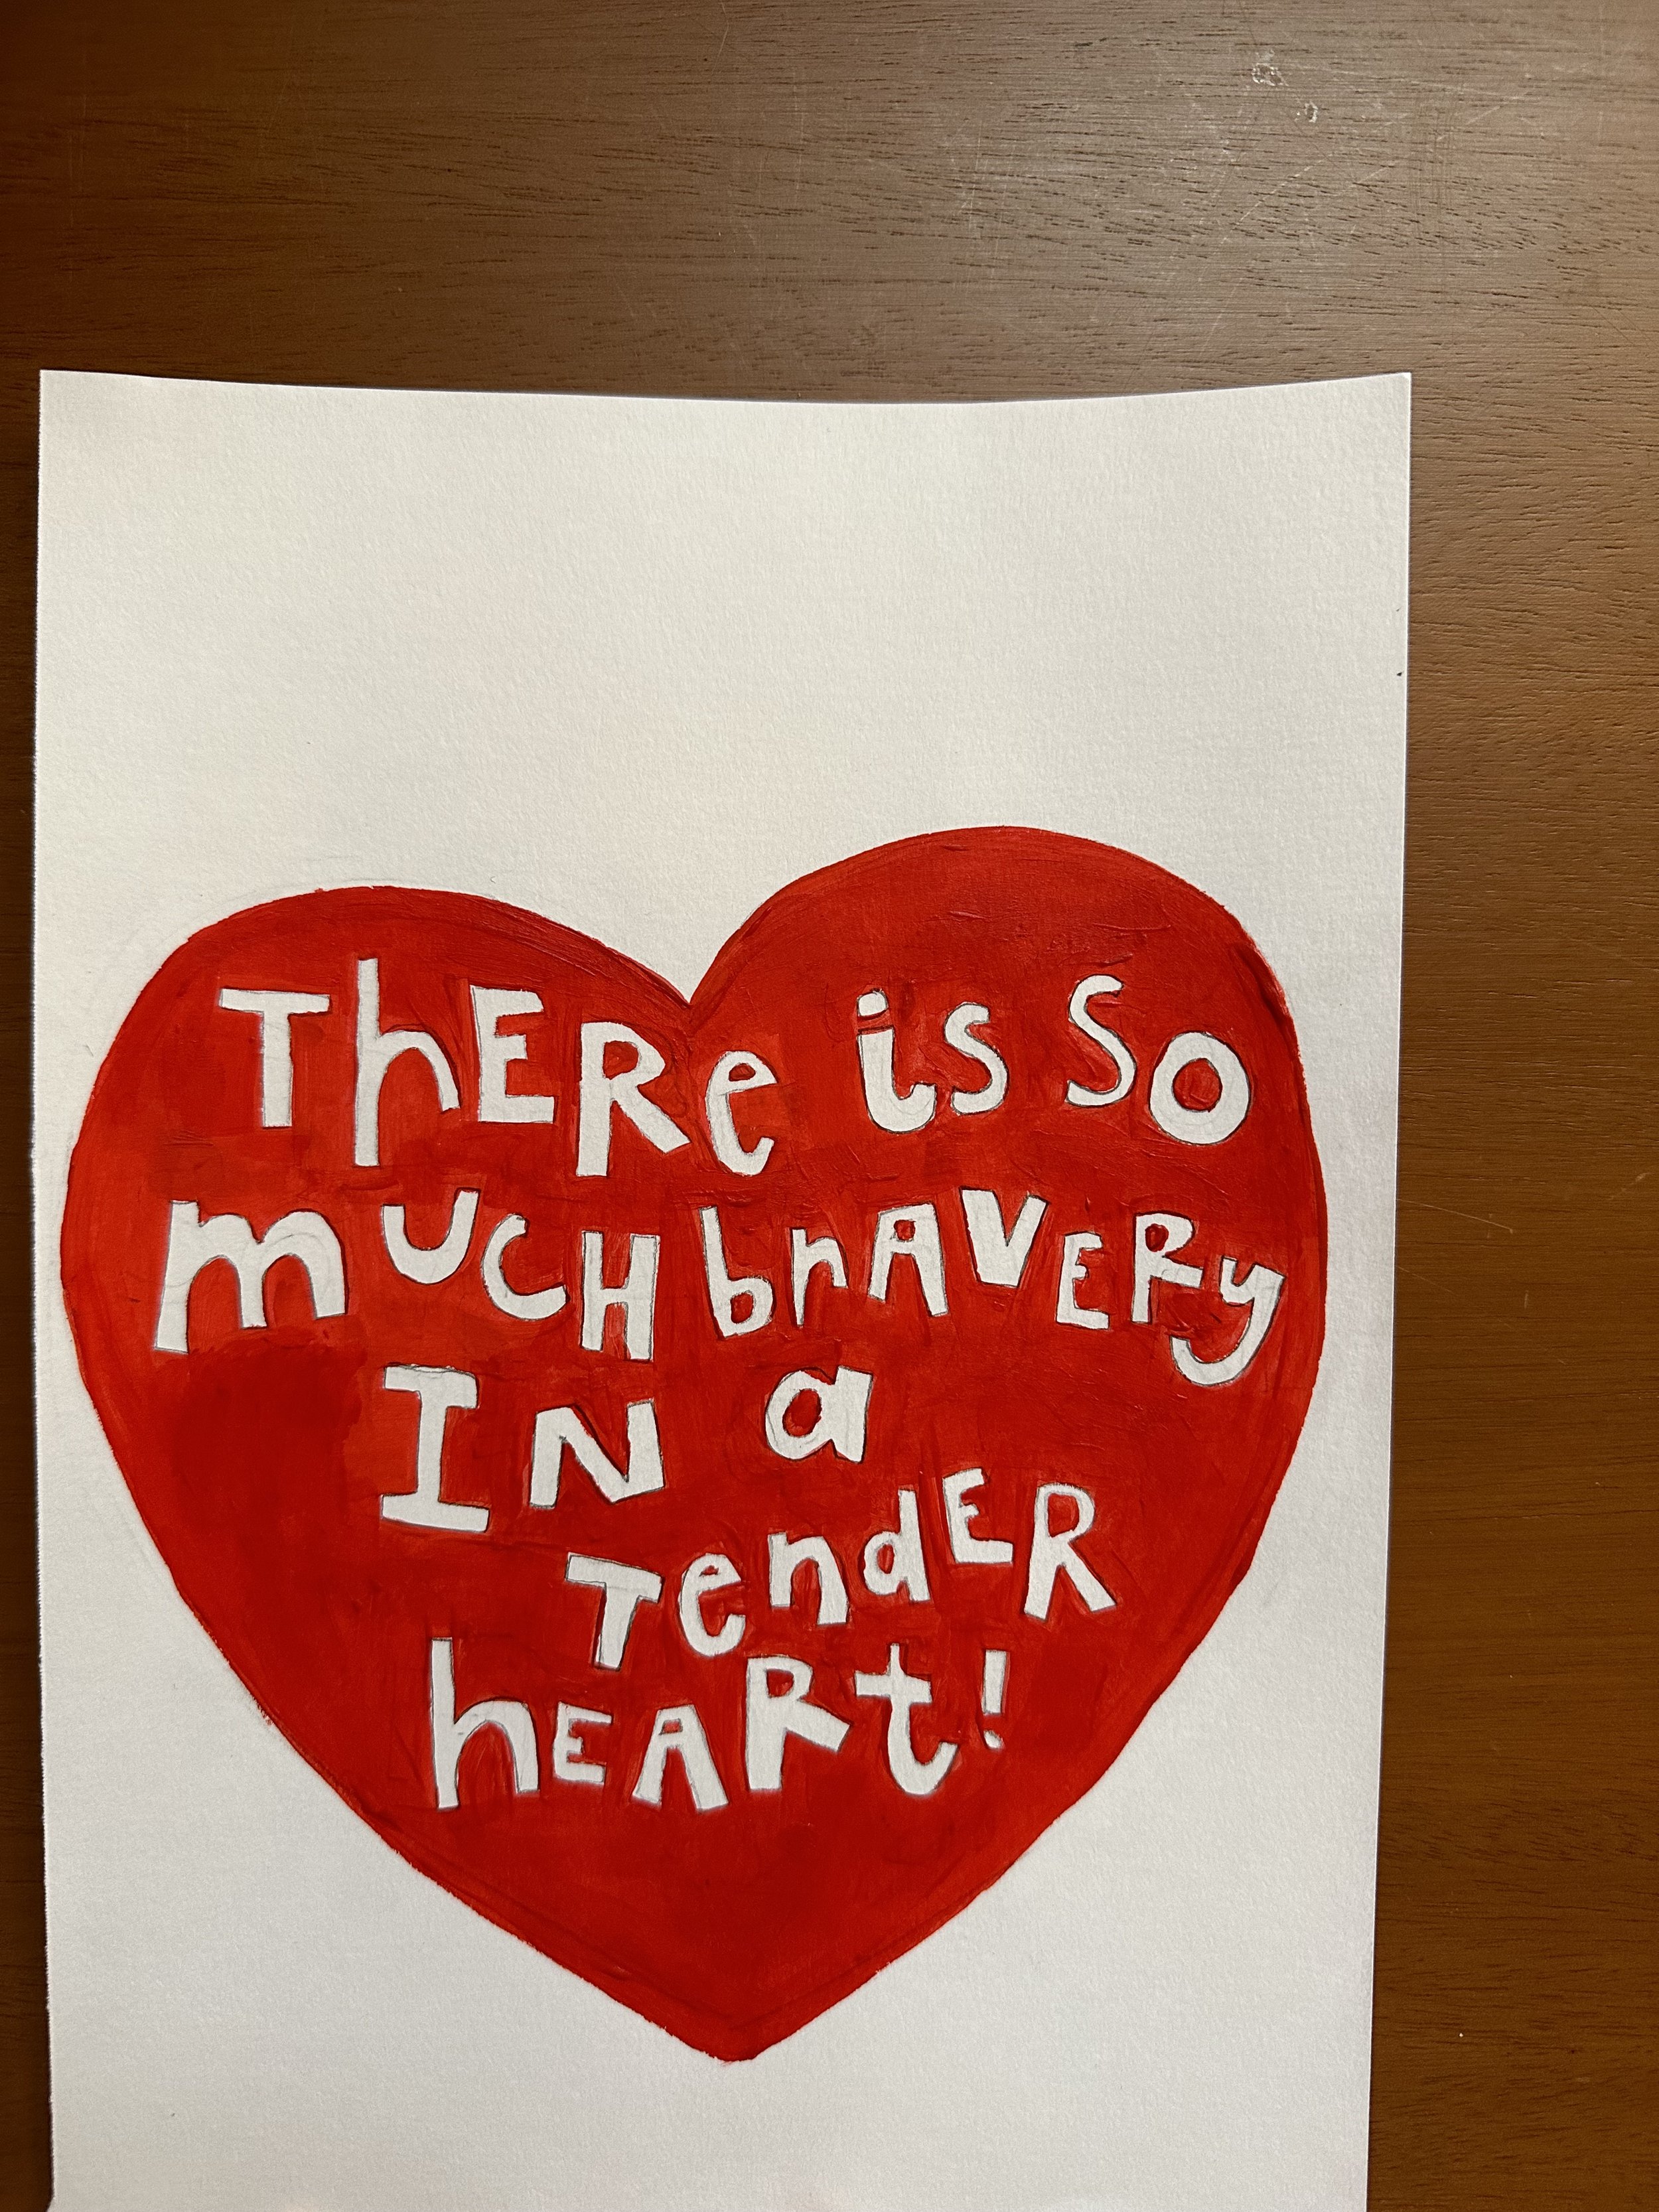 ThERe is So
mUCH brAVERy
IN a
TendER
hEARt!